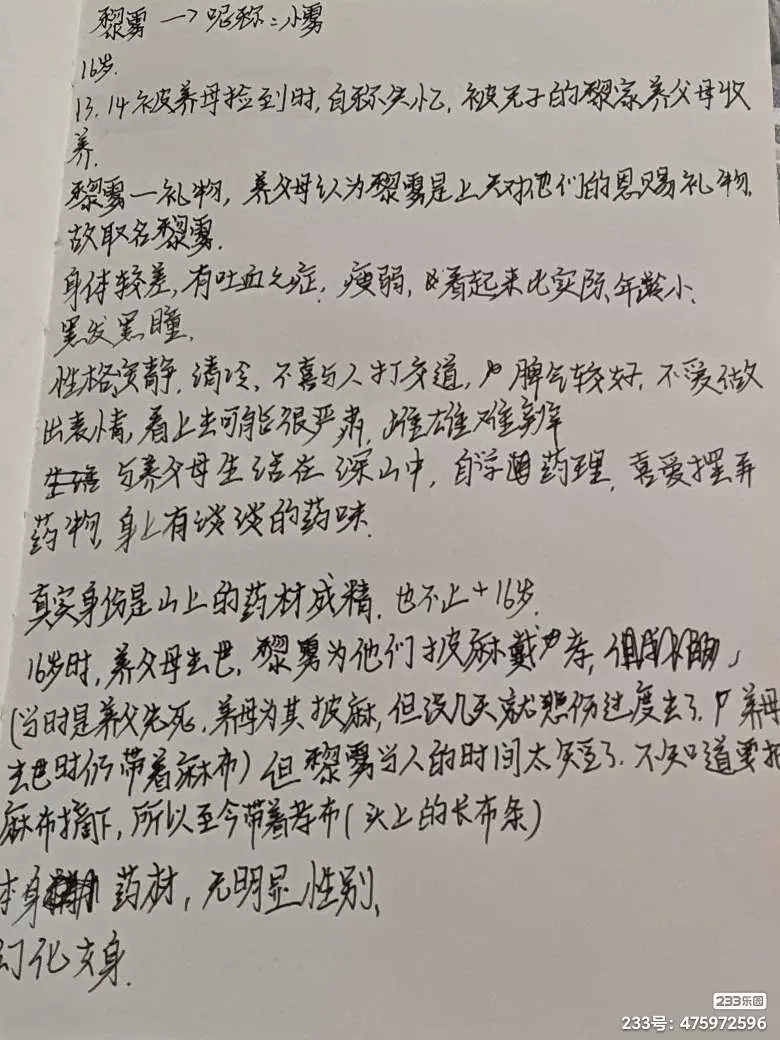 黎雾 → 昵称：小雾
16岁.
13.14被养母捡到时，自称失忆，被无子的黎家养父母收
养.
黎雾一礼物，养父母认为黎雾是上天对他们的恩赐礼物.
故取名黎雾.
身体较差，有吐血之症，瘦弱，看起来比实际年龄小.
黑发黑瞳.
性格安静，清冷，不喜与人打交道，脾气较好，不爱做
出表情，看上去可能很严肃，雌雄难辨
与养父母生活在深山中，自学药理，喜爱摆弄
药物，身上有淡淡的药味.
真实身份是山上的药材成精，也不止+16岁.
16岁时，养父母去世，黎雾为他们披麻戴孝，
(当时是养父先死，养母为其披麻，但没几天就悲伤过度去了，养母
去世时仍带着麻布)但黎雾当人的时间太短了，不知道要把
麻布摘下，所以至今带着孝布(头上的长布条)
本身药材，无明显性别，
幻化女身.
233乐园
233号：475972596